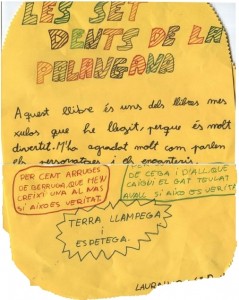 LES SET
DENTS DE LA
PALANGANA
Aquest llibre és uns dels llibres mes
xulos que he llegit, perque és molt
divertit. M'ha agradat molt com parlen
els personatges i els encanteris.
PER CENT ARRUGES
DE BERRUGA, QUE ME'N
CREIXI UNA AL NAS
SI AIXÒ ES VERITAT.
DE CEBA I D'ALL, QUE
CAIGUI EL GAT TEULAT
AVALL SI AIXO ES VERITAT
TERRA LLAMPEGA
I ESPETEGA.
LAURA